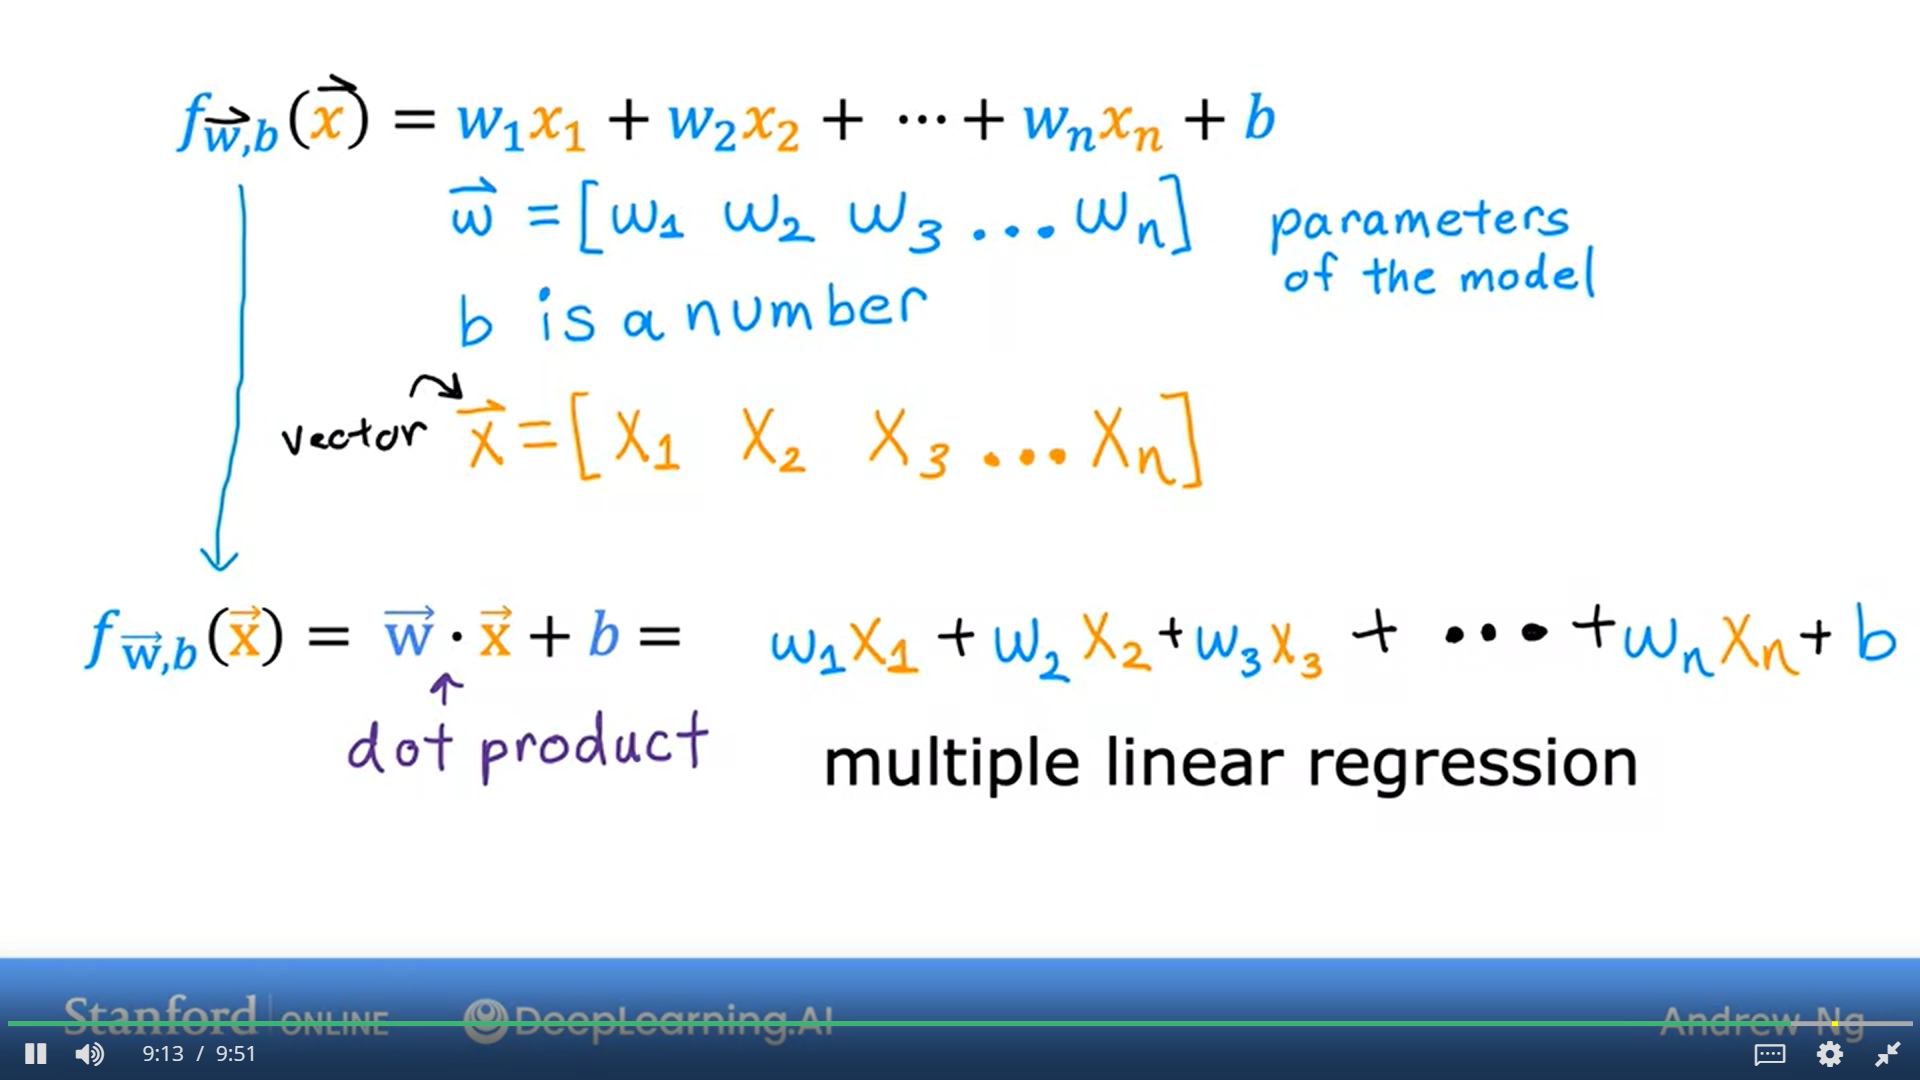 f w⃗,b (x⃗) = w₁x₁ + w₂x₂ + ⋯ + wₙxₙ + b
w⃗ = [w₁ w₂ w₃ ... wₙ] parameters
of the model
b is a number
vector x⃗ = [x₁ x₂ x₃ ... xₙ]
f w⃗,b (x⃗) = w⃗ · x⃗ + b = w₁x₁ + w₂x₂ + w₃x₃ + ... + wₙxₙ + b
dot product
multiple linear regression
Stanford | ONLINE DeepLearning.AI Andrew Ng
9:13 / 9:51